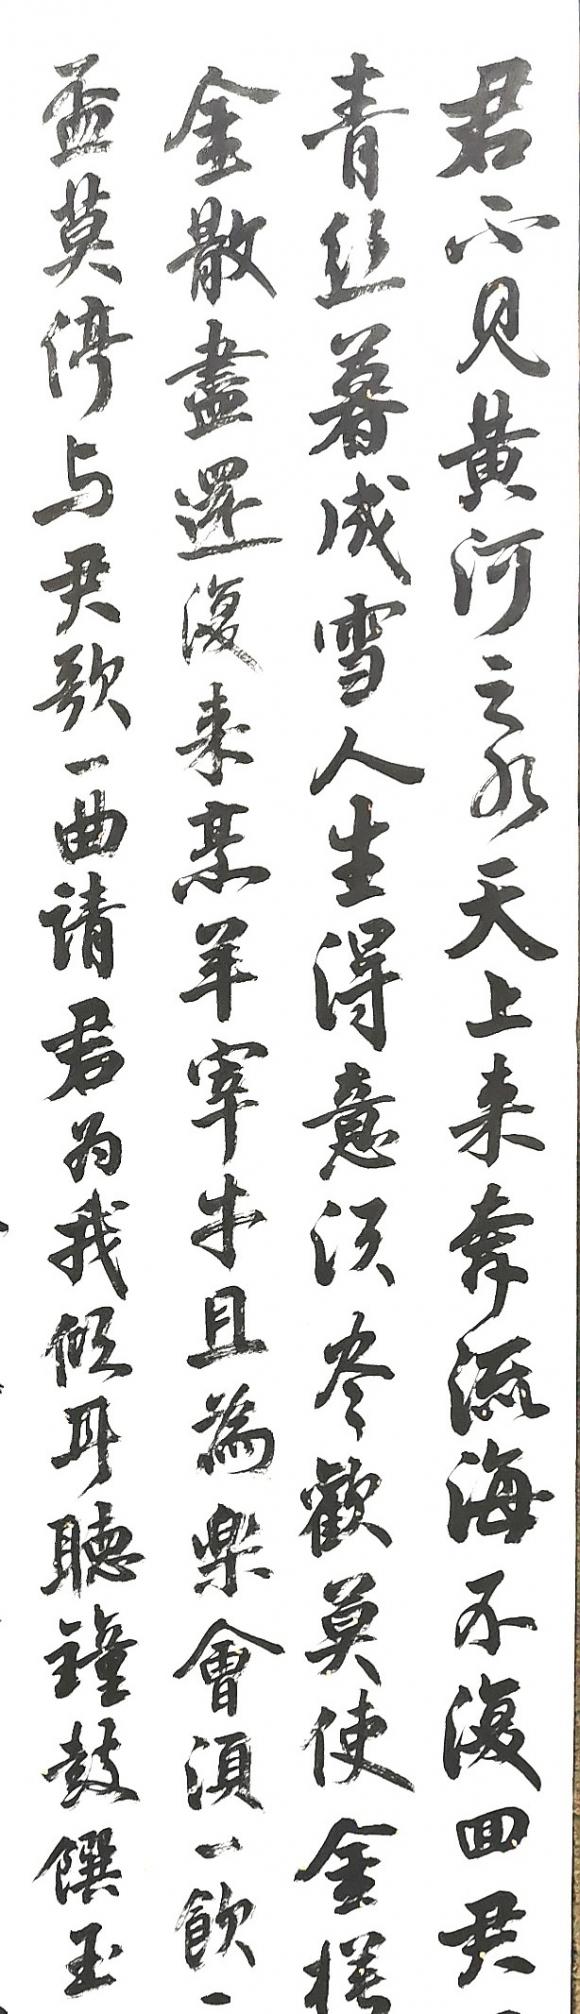 君不见黄河之水天上来奔流海不復回君
青丝暮成雪人生得意须尽歡莫使金樽
金散盡還復来烹羊宰牛且為樂會須一飲一
盃莫停与君歌一曲請君为我倾耳聽鐘鼓饌玉